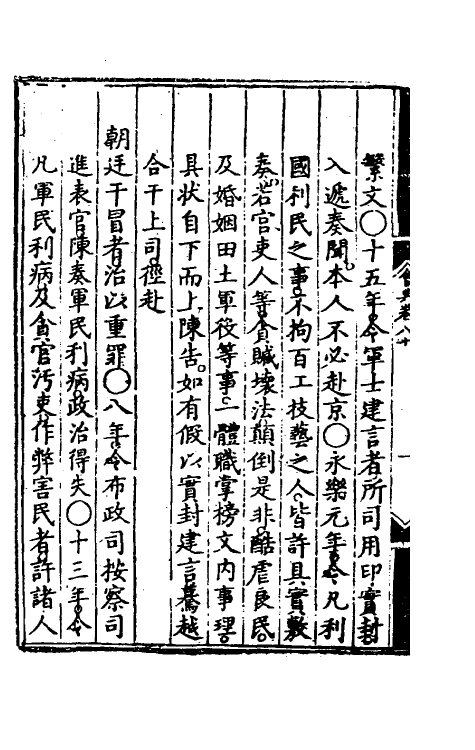 繁文〇十五年令軍士建言者所司用印實封
入遞奏聞本人不必赴京〇永樂元年令凡利
國利民之事不拘百工技藝之人皆許具實敷
奏若官吏人等貪贓壞法顛倒是非酷虐良民
及婚姻田土軍役等事一體職掌榜文內事理
具狀自下而上陳告如有假以實封建言驀越
合干上司徑赴
朝廷干冒者治以重罪〇八年令布政司按察司
進表官陳奏軍民利病政治得失〇十三年令
凡軍民利病及貪官污吏作弊害民者許諸人
會典卷八十
一